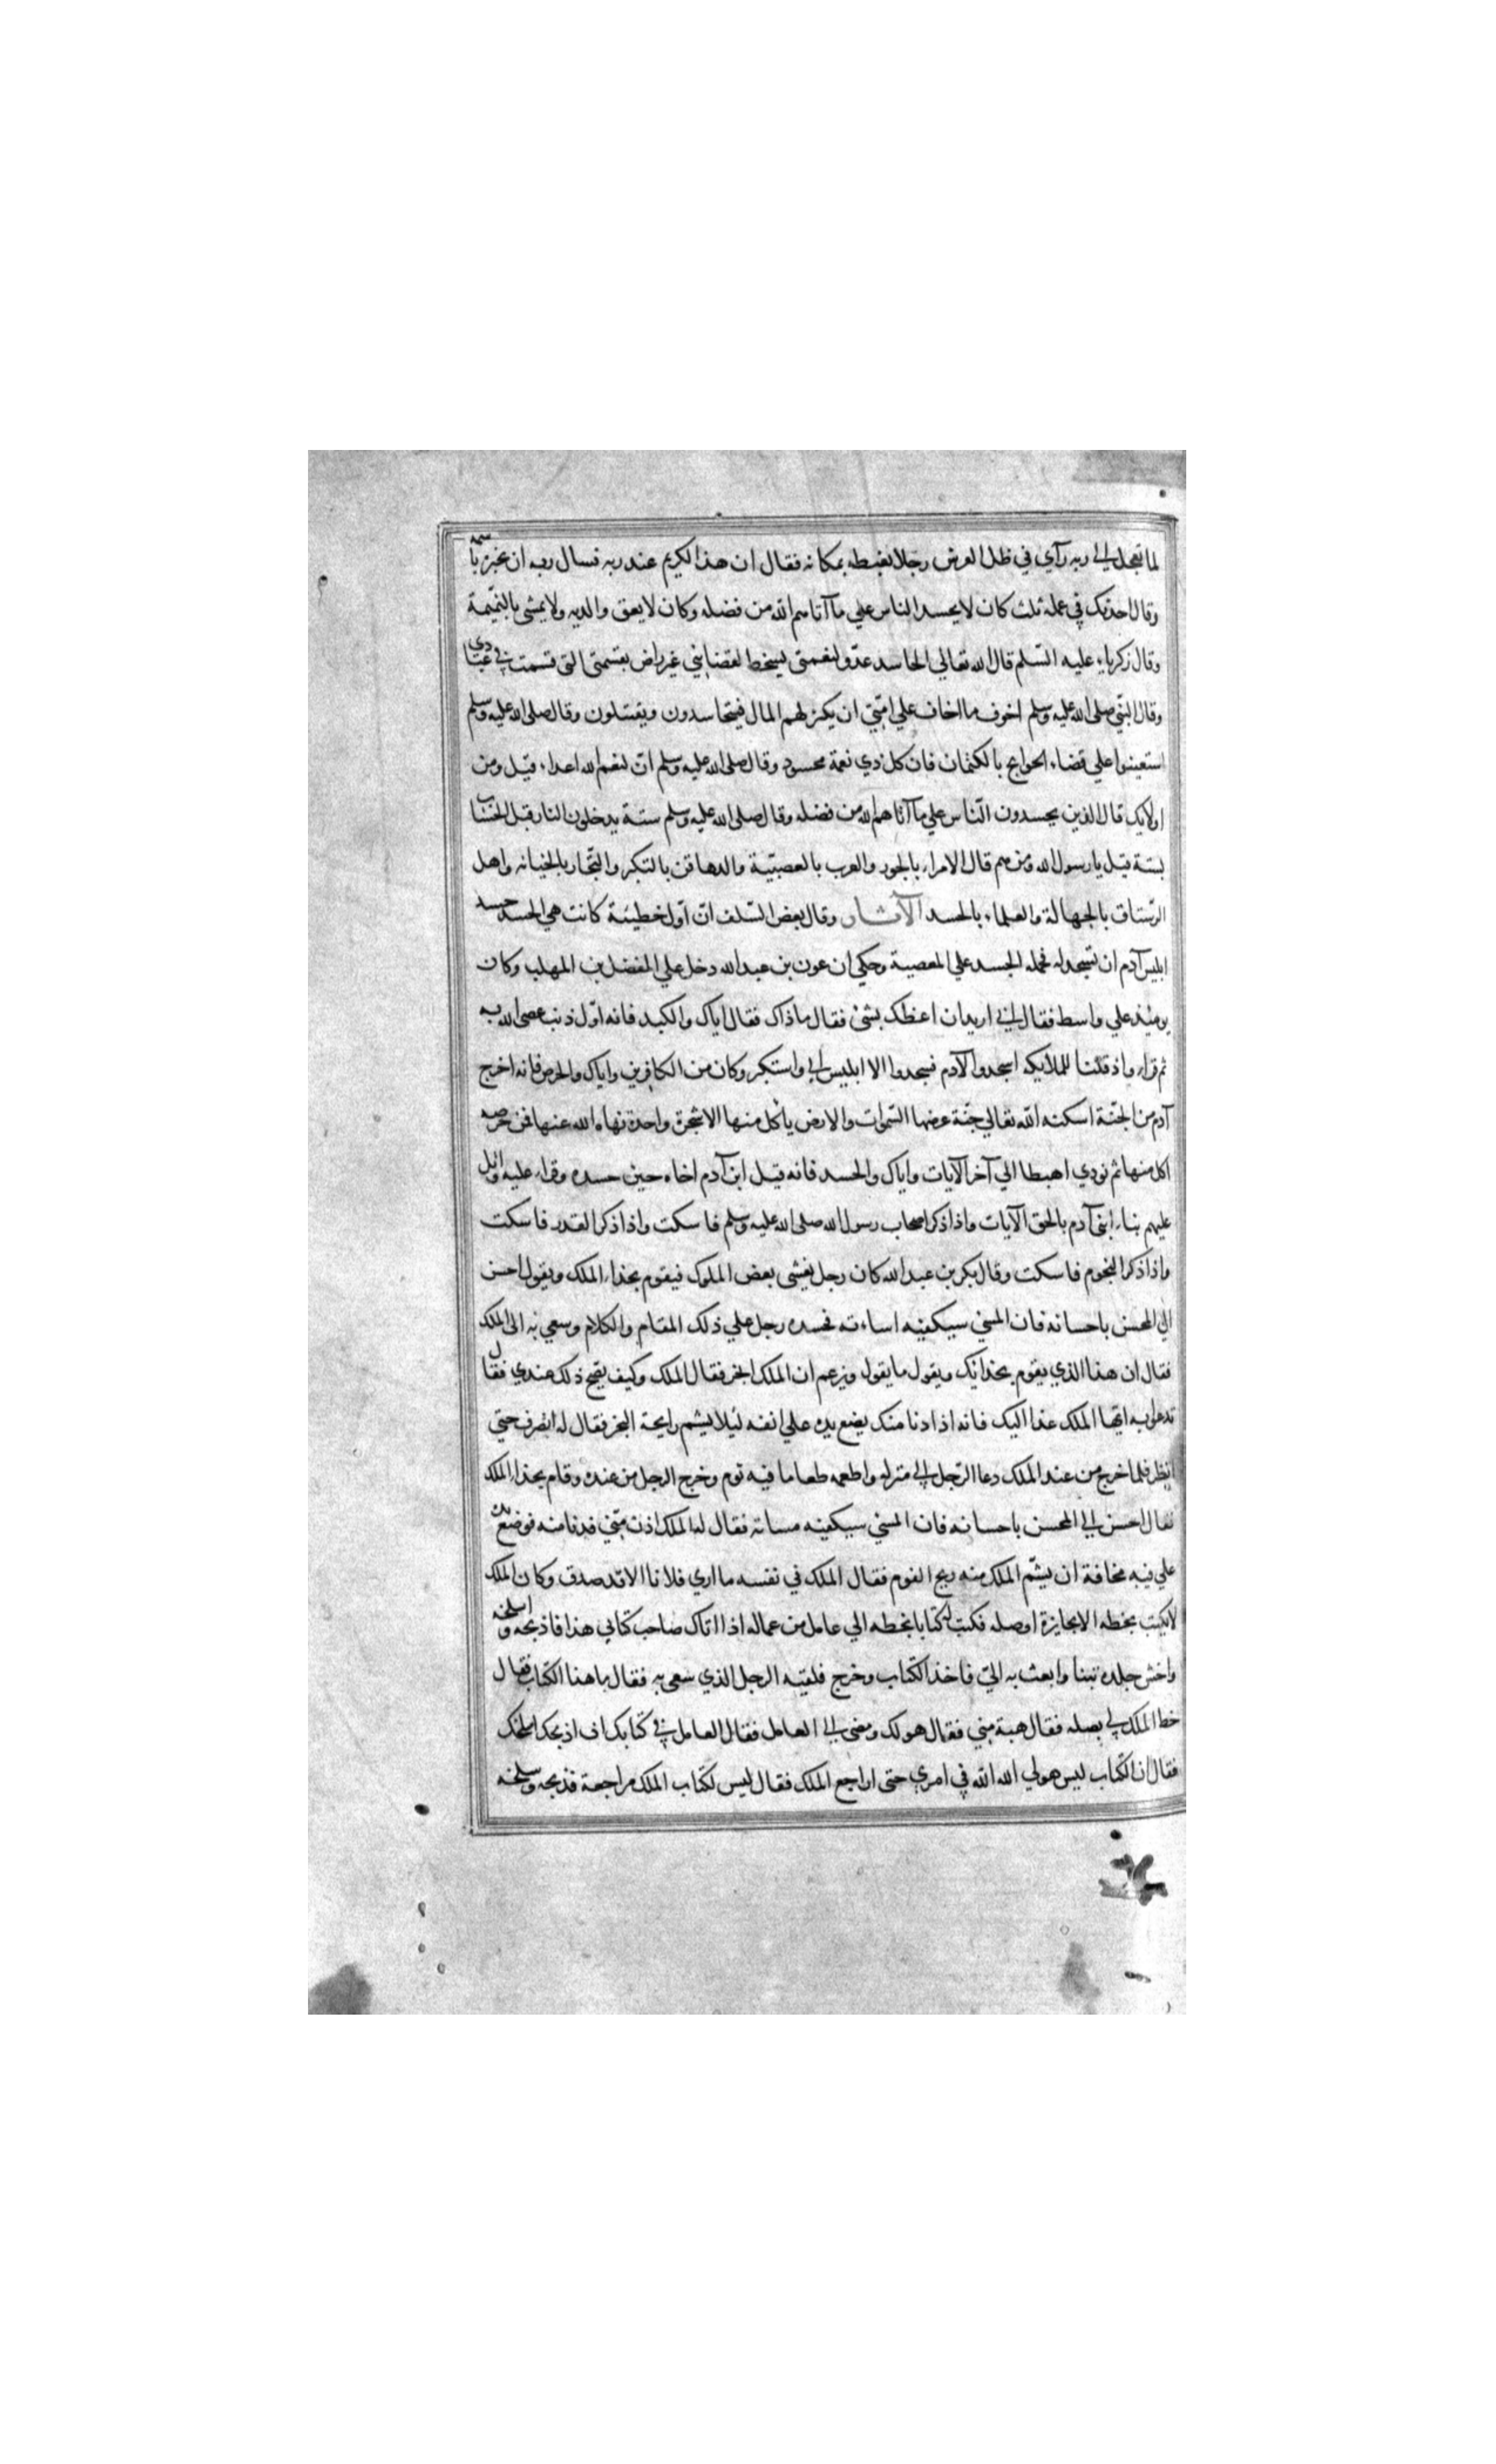 لما تعجل الي ربه رآي في ظل العرش رجلا يغبطه بمكانه فقال ان هذا لكريم عند ربه فسال ربه ان يخبره باسمه
وقال احدثك في عمله ثلث كان لا يحسد الناس علي ما آتاهم الله من فضله وكان لا يعق والديه ولا يمشي بالنميمة
وقال زكرياء عليه السلم قال الله تعالي الحاسد عدو لنعمتي يسخط لقضايئي غير راض بقسمتي التي قسمت في عبادي
وقال النبي صلي الله عليه وسلم اخوف ما اخاف علي امتي ان يكثر لهم المال فيتحاسدون ويقتتلون وقال صلي الله عليه وسلم
استعينوا علي قضاء الحوايج بالكتمان فان كل ذي نعمة محسود وقال صلي الله عليه وسلم ان لنعم الله اعداء قيل ومن
اولايك قال الذين يحسدون الناس علي ما آتاهم الله من فضله وقال صلي الله عليه وسلم ستة يدخلون النار قبل الحساب
بستة قيل يا رسول الله من هم قال الامراء بالجور والعرب بالعصبية والدهاقن بالتكبر والتجار بالخيانه واهل
الرستاق بالجهالة والعلماء بالحسد الآثـار وقال بعض السلف ان اول خطيئة كانت هي الحسد حسد
ابليس آدم ان يسجد له فحمله الحسد علي المعصية وحكي ان عون بن عبد الله دخل علي المفضل بن المهلب وكان
يومئذ علي واسط فقال اني اريد ان اعظك بشئ فقال ما ذاك فقال اياك والكبر فانه اول ذنب عصي الله به
ثم قراء واذ قلنا للملايكة اسجدوا لآدم فسجدوا الا ابليس ابي واستكبر وكان من الكافرين واياك والحرص فانه اخرج
آدم من الجنة اسكنه الله تعالي جنة عرضها السموات والارض ياكل منها الا شجرة واحدة نهاه الله عنها فمن حرصه
اكل منها ثم نودي اهبطا الي آخر الآيات واياك والحسد فانه قتل ابن آدم اخاه حين حسده وقراء عليه واتل
عليهم نباء ابني آدم بالحق الآيات واذا ذكر اصحاب رسول الله صلي الله عليه وسلم فاسكت واذا ذكر القدر فاسكت
واذا ذكر النجوم فاسكت وقال بكر بن عبد الله كان رجل يغشي بعض الملوك فيقوم بحذاء الملك ويقول احسن
الي المحسن باحسانه فان المسئ سيكفيه اساءته فحسده رجل علي ذلك المقام والكلام وسعي به الي الملك
فقال ان هذا الذي يقوم بحذائك ويقول ما يقول ويزعم ان الملك ابخر فقال الملك وكيف يصح ذلك عندي فقال
تدعوا به ايها الملك غدا اليك فانه اذا دنا منك يضع يده علي انفه ليلا يشم رايحة البخر فقال له انصرف حتي
انظر فلما خرج من عند الملك دعا الرجل الي منزله واطعمه طعاما فيه ثوم وخرج الرجل من عنده وقام بحذاء الملك
فقال احسن الي المحسن باحسانه فان المسئ سيكفيه مساته فقال له الملك ادن مني فدنا منه فوضع يده
علي فيه مخافة ان يشم الملك منه ريح الثوم فقال الملك في نفسه ما اري فلانا الا قد صدق وكان الملك
لا يكتب بخطه الا بجايزة او صله فكتب له كتابا بخطه الي عامل من عماله اذا اتاك صاحب كتابي هذا فاذبحه واسلخه
واخش جلده تبنا وابعث به الي فاخذ الكتاب وخرج فلقيه الرجل الذي سعي به فقال ما هذا الكتاب فقال
خط الملك لي بصله فقال هبة مني فقال هو لك ومضي الي العامل فقال العامل في كتابك ان اذبحك اسلخك
فقال ان الكتاب ليس هو لي الله الله في امري حتي اراجع الملك فقال ليس لكتاب الملك مراجعة فذبحه وسلخه